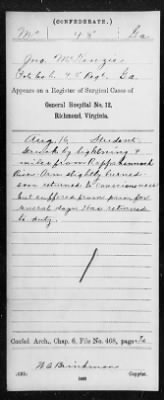 (CONFEDERATE.)
Mc 48 Ga
Jno. McKenzie
Co. 48 Regt. Ga.
Appears on a Register of Surgical Cases of
General Hospital No. 12,
Richmond, Virginia.
Aug. 16 Student
Struck by lightning 4
miles from Rappahannock
River Arm slightly burned
soon returned to consciousness
but suffered from pain for
several days. Has returned
to duty.
Confed. Arch., Chap. 6, File No. 468, page
H. A. Brinkman
Copyist.